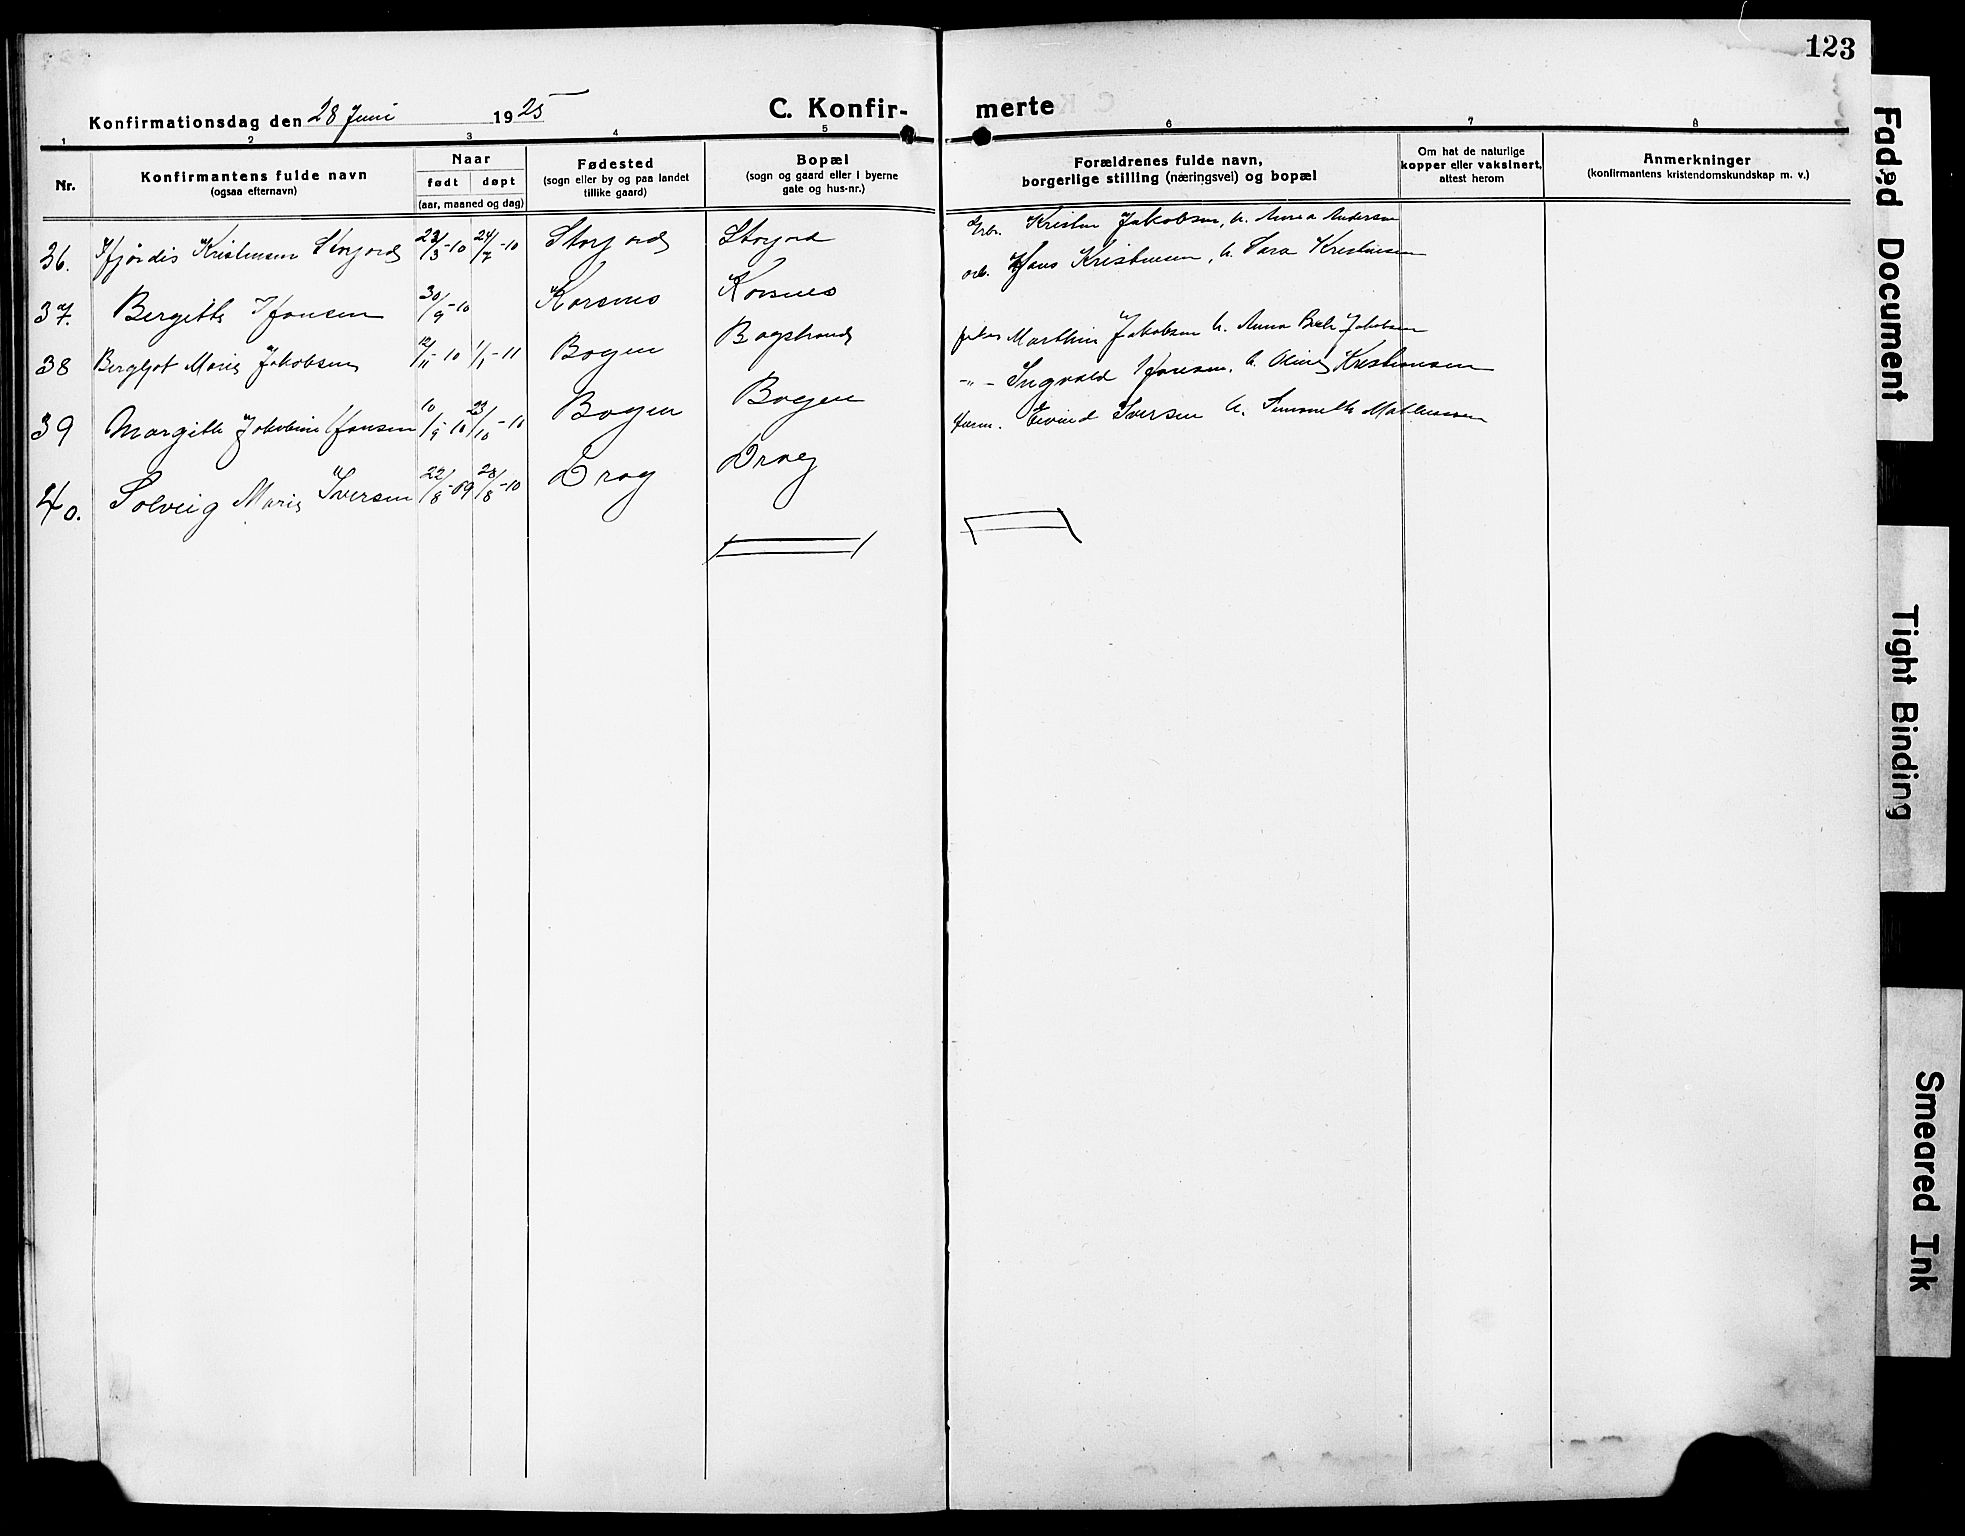 123
Konfirmationsdag den 28 Juni 1925
C. Konfir- merte
1 2 3 4 5 6 7 8
Nr.
Konfirmantens fulde navn
(ogsaa efternavn)
Naar
født døpt
(aar, maaned og dag)
Fødested
(sogn eller by og paa landet
tillike gaard)
Bopæl
(sogn og gaard eller i byerne
gate og hus-nr.)
Forældrenes fulde navn,
borgerlige stilling (næringsvei) og bopæl
Om hat de naturlige
kopper eller vaksinert,
attest herom
Anmerkninger
(konfirmantens kristendomskundskap m. v.)
36. Hjørdis Kristensen Storjord 23/3-10 24/7-10 Storjord Storjord Kristen Jakobsen, h. Anna Andersen
37. Bergitte Hansen 30/9-10 Korsnes Korsnes arb. Hans Kristensen, h. Sara Kristensen
38 Bergljot Marie Jakobsen 12/11-10 1/1-11 Bogen Bogstrand Marthin Jakobsen h. Anna Jakobsen
39 Margith Jakobine Hansen 10/9-10 23/10-10 Bogen Bogen -"- Ingvald Hansen, h. Kristiansen
40. Solveig Marie Iversen 22/8-09 28/8-10 Drag Drag Eivind Iversen h.
Faded Document
Tight Binding
Smeared Ink